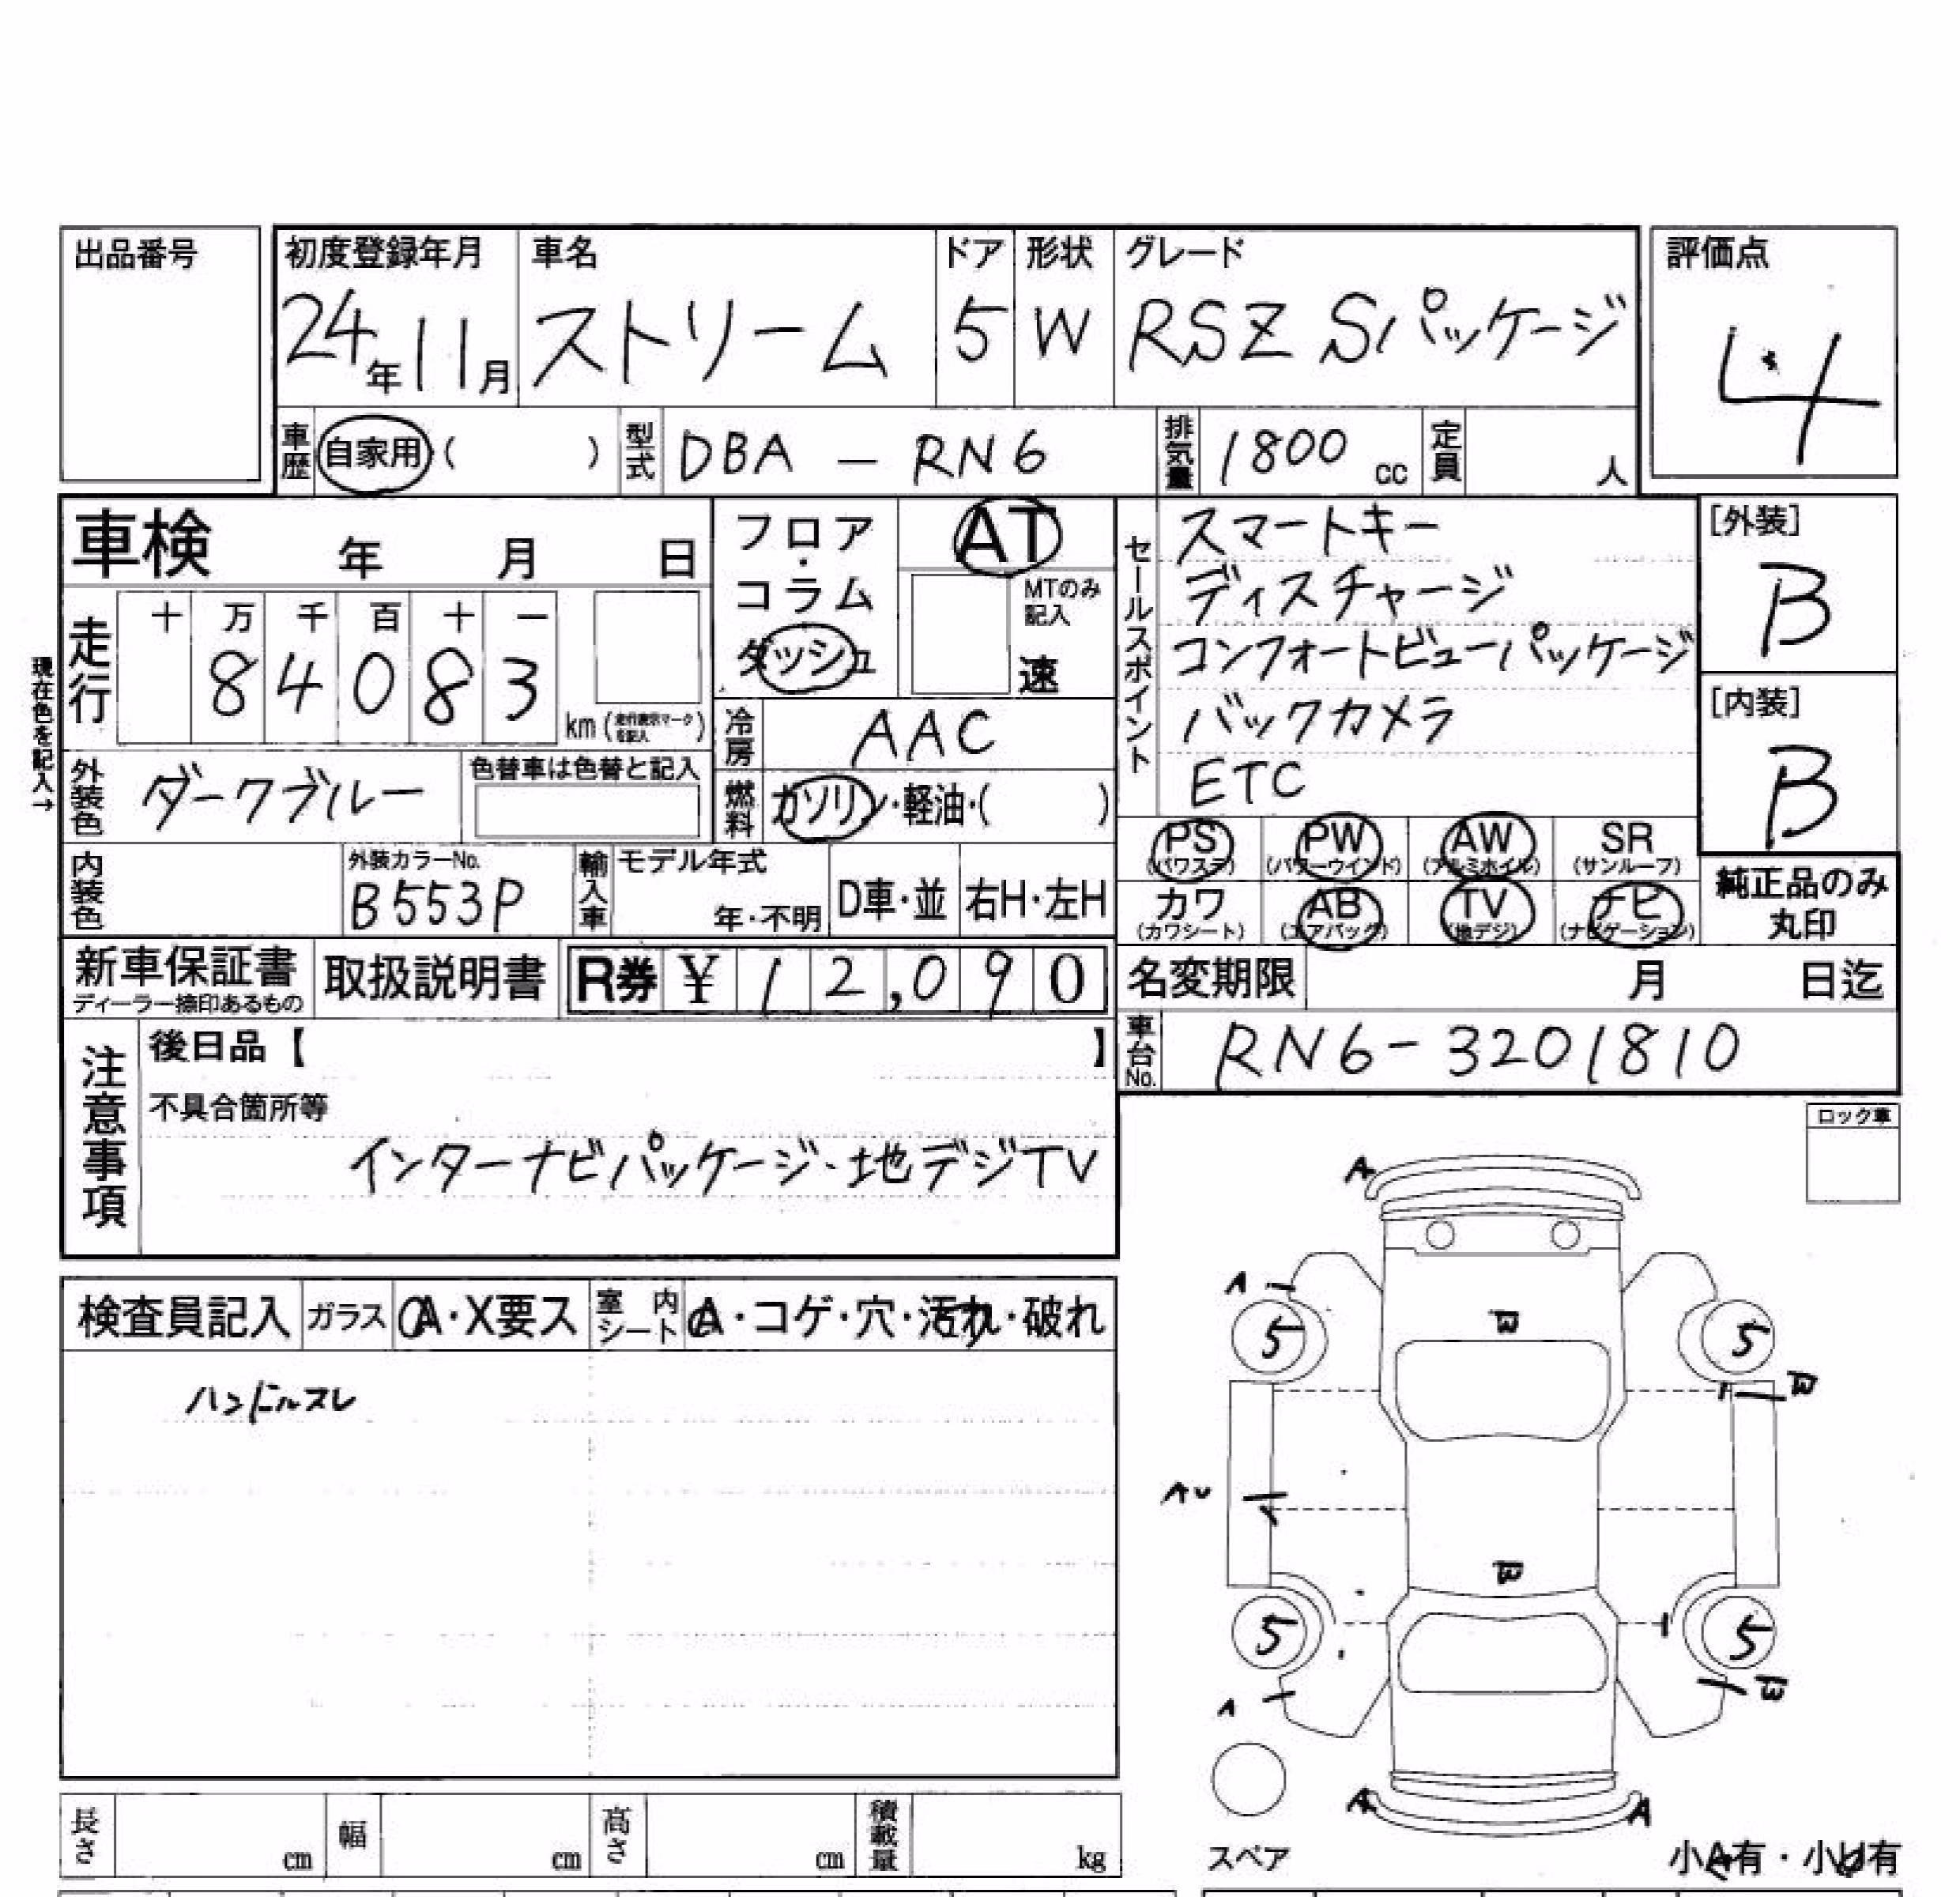 出品番号
初度登録年月 車名 ドア 形状 グレード 評価点
24年11月 ストリーム 5 W RSZ Sパッケージ 4
車歴 自家用 ( ) 型式 DBA - RN6 排気量 1800 cc 定員 人
車検 年 月 日
フロア・コラム ダッシュ
AT
MTのみ記入
速
セールスポイント
スマートキー
ディスチャージ
コンフォートビューパッケージ
バックカメラ
ETC
[外装]
B
[内装]
B
現在色を記入→
走行 十 万 千 百 十 一
84083 km (走行表示マークを記入)
冷房 AAC
外装色 ダークブルー 色替車は色替と記入
燃料 ガソリン・軽油・( )
PS (パワステ) PW (パワーウインド) AW (アルミホイル) SR (サンルーフ)
カワ (カワシート) AB (エアバック) TV (地デジ) ナビ (ナビゲーション)
純正品のみ
丸印
内装色 外装カラーNo. B553P 輸入車 モデル年式 年・不明 D車・並 右H・左H
新車保証書 取扱説明書 R券 ¥ 12,090 名変期限 月 日迄
ディーラー捺印あるもの
車台No. RN6-3201810
注意事項
後日品【 】
不具合箇所等
インターナビパッケージ・地デジTV
ロック車
検査員記入 ガラス A・X要ス 室内シート A・コゲ・穴・汚れ・破れ
ハンドルスレ
A
A
W
5 5
W
AU
W
5 5
W
A
A A
スペア
小A有・小U有
長さ cm 幅 cm 高さ cm 積載量 kg